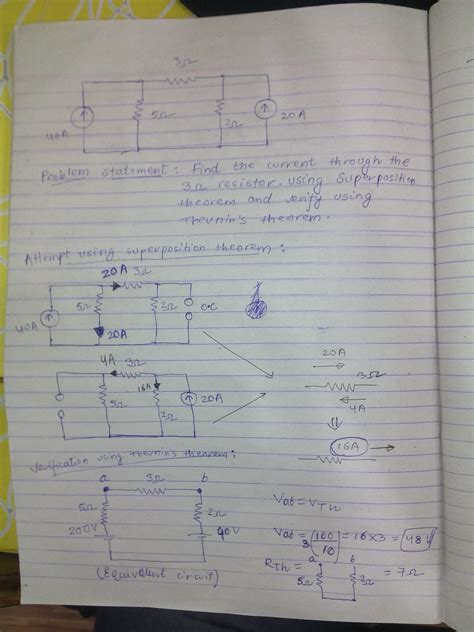 3Ω
40A
5Ω
2Ω
20A
Problem statement: Find the current through the
3Ω resistor using Superposition
theorem and verify using
Thevnin's theorem.
Attempt using superposition theorem:
20A 3Ω
40A
5Ω
20A
2Ω
O.C
4A 3Ω
5Ω
16A
2Ω
20A
20A
3Ω
4A
16A
Verification using Thevnin's theorem:
a b
3Ω
5Ω
200V
2Ω
40V
(Equivalent circuit)
Vab = VTh
Vab = 3(160/10) = 16×3 = 48V
RTh = a b = 7Ω
5Ω